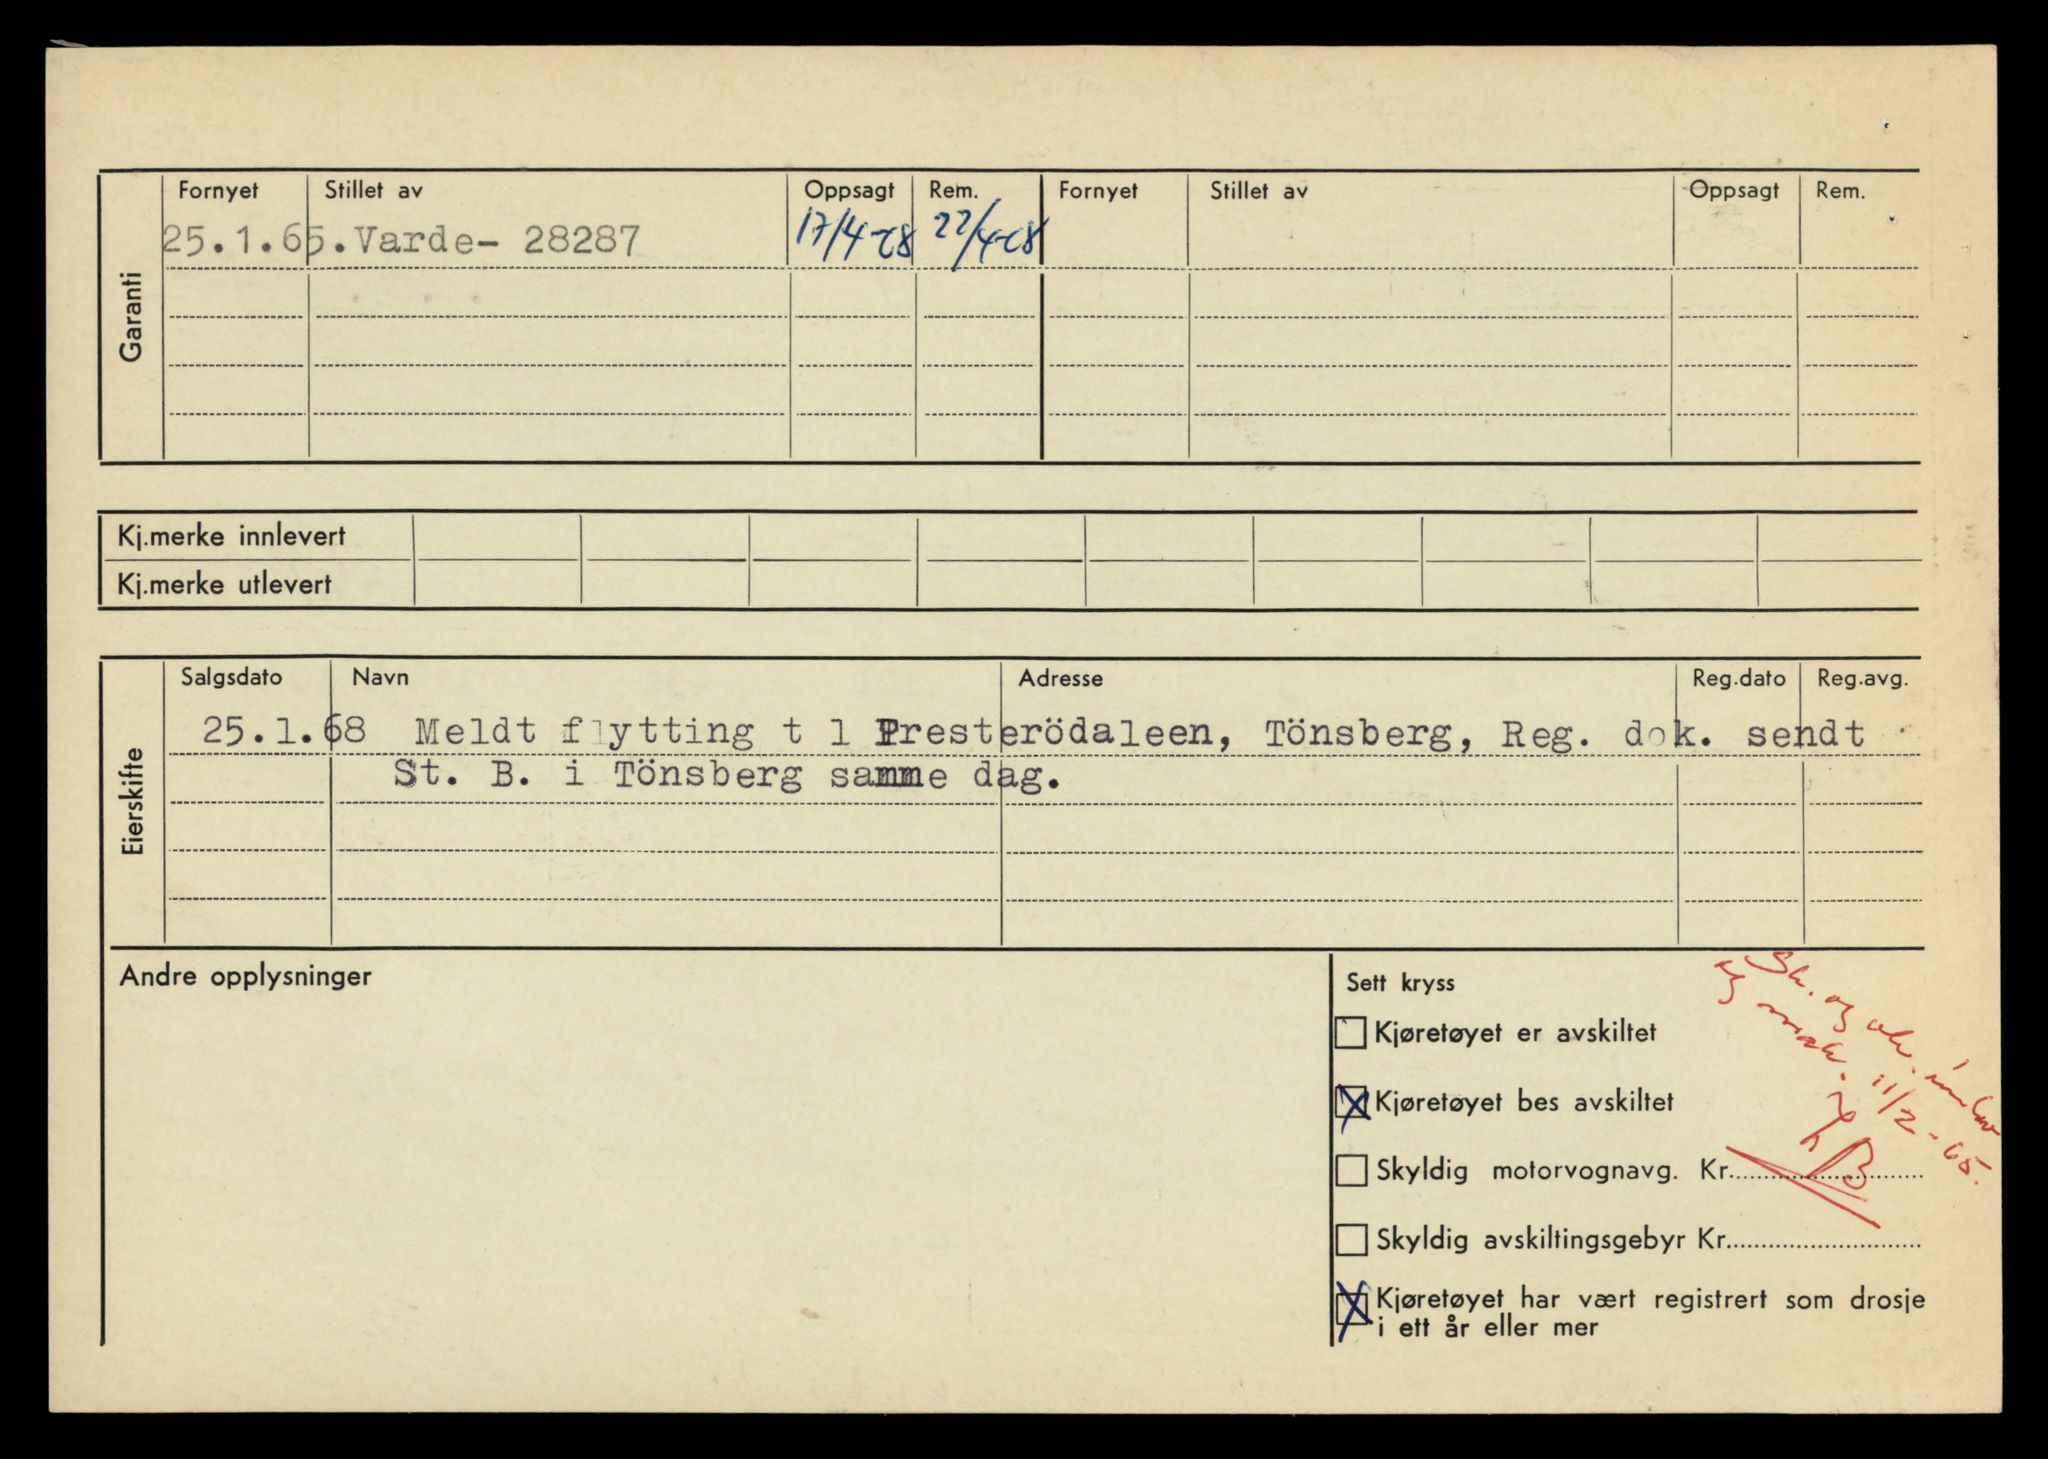 Garanti
Fornyet Stillet av Oppsagt Rem. Fornyet Stillet av Oppsagt Rem.
25.1.65. Varde- 28287 17/4-68 22/4-68
Kj.merke innlevert
Kj.merke utlevert
Eierskifte
Salgsdato Navn Adresse Reg.dato Reg.avg.
25.1.68 Meldt flytting t l Presterödaleen, Tönsberg, Reg. dok. sendt
St. B. i Tönsberg samme dag.
Andre opplysninger
Sett kryss
Kjøretøyet er avskiltet
Kjøretøyet bes avskiltet
Skyldig motorvognavg. Kr.
Skyldig avskiltingsgebyr Kr.
Kjøretøyet har vært registrert som drosje
i ett år eller mer
og
og 11/2-65.